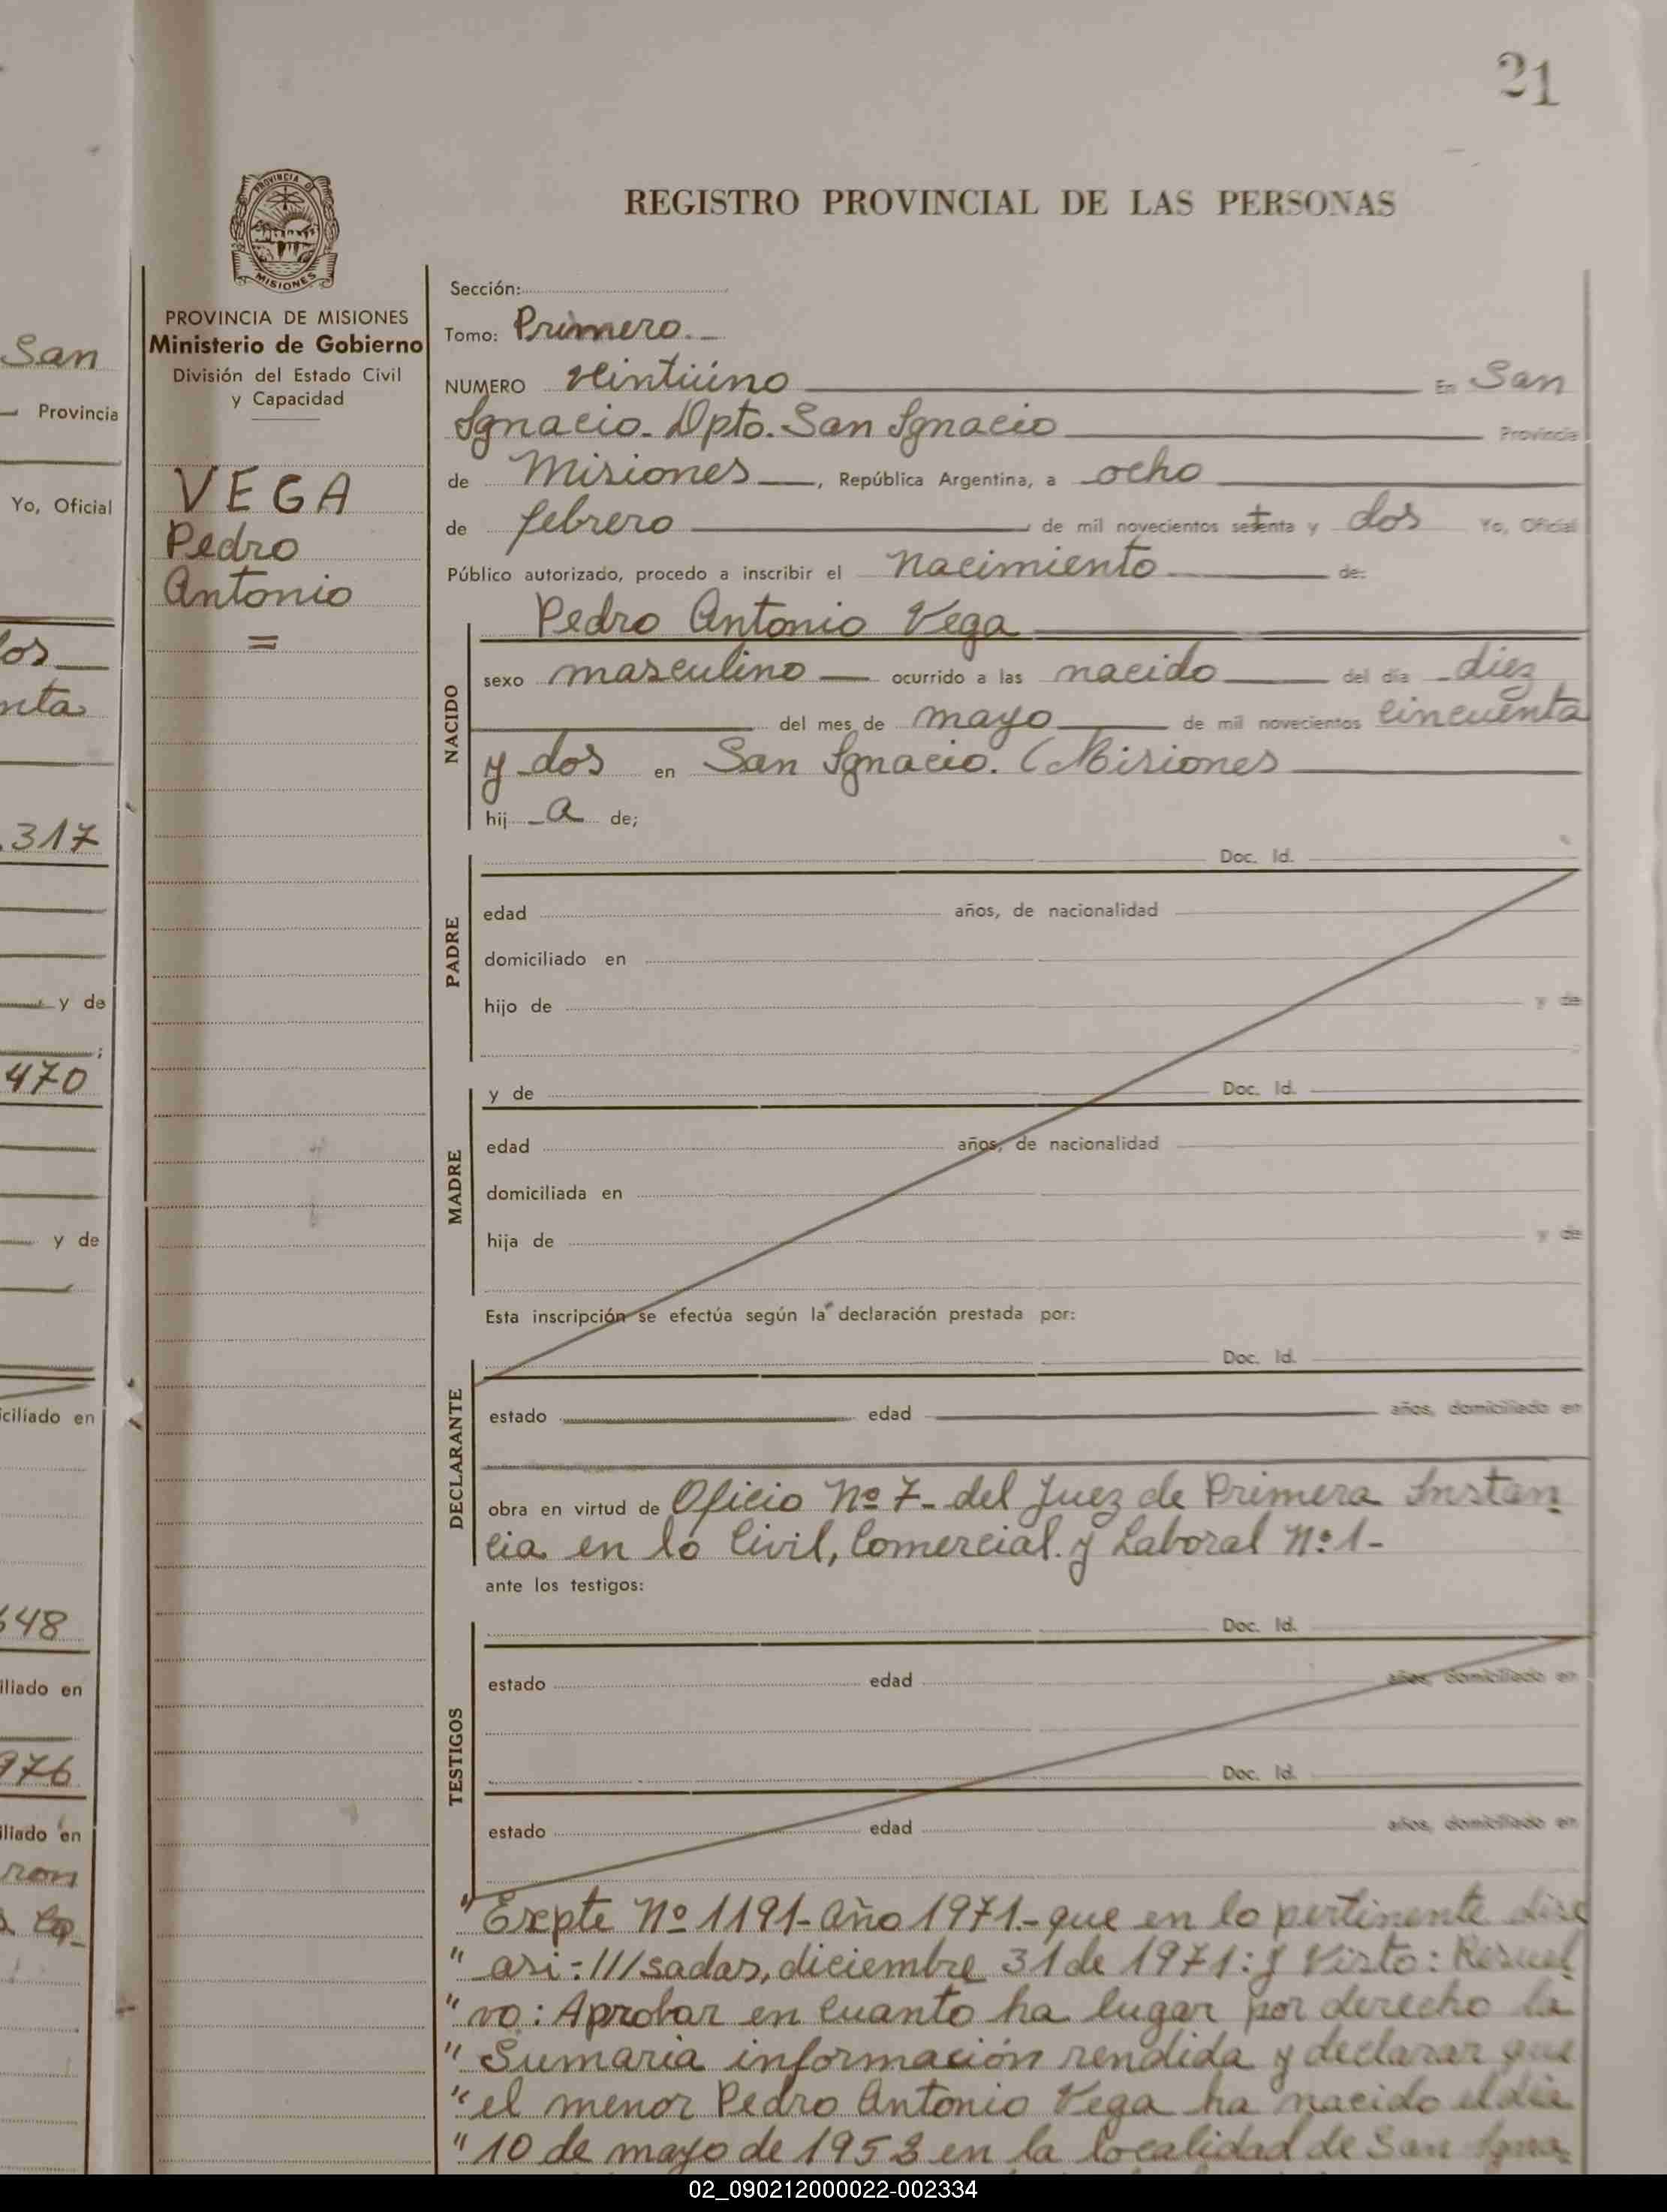 21
REGISTRO PROVINCIAL DE LAS PERSONAS
PROVINCIA DE
MISIONES
PROVINCIA DE MISIONES
Ministerio de Gobierno
División del Estado Civil
y Capacidad
VEGA
Pedro
Antonio
=
Sección:
Tomo: Primero.
NUMERO veintiúno En San
Ignacio. Dpto. San Ignacio Provincia
de Misiones, República Argentina, a ocho
de febrero de mil novecientos setenta y dos Yo, Oficial
Público autorizado, procedo a inscribir el nacimiento de:
NACIDO
Pedro Antonio Vega
sexo masculino ocurrido a las nacido del día diez
del mes de mayo de mil novecientos cincuenta
y dos en San Ignacio. (Misiones
hij a de;
PADRE
Doc. Id.
edad años, de nacionalidad
domiciliado en
hijo de y de
MADRE
y de Doc. Id.
edad años, de nacionalidad
domiciliada en
hija de y de
Esta inscripción se efectúa según la declaración prestada por:
DECLARANTE
Doc. Id.
estado edad años, domiciliado en
obra en virtud de Oficio Nº 7- del Juez de Primera Instan
cia en lo Civil, Comercial. y Laboral Nº 1-
ante los testigos:
TESTIGOS
Doc. Id.
estado edad años, domiciliado en
Doc. Id.
estado edad años, domiciliado en
" Expte Nº 1191- Año 1971.- que en lo pertinente dice
" asi: ///sadas, diciembre 31 de 1971: y Visto: Resuel
" vo: Aprobar en cuanto ha lugar por derecho la
" Sumaria información rendida y declarar que
" el menor Pedro Antonio Vega ha nacido el día
" 10 de mayo de en la localidad de San Igna
San
Provincia
Yo, Oficial
los
nta
317
y de
470
y de
ciliado en
648
iliado en
976
iliado en
ron
02_090212000022-002334